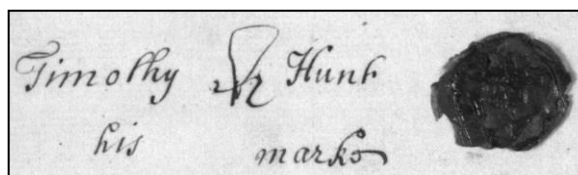 Timothy Hunt
his marke